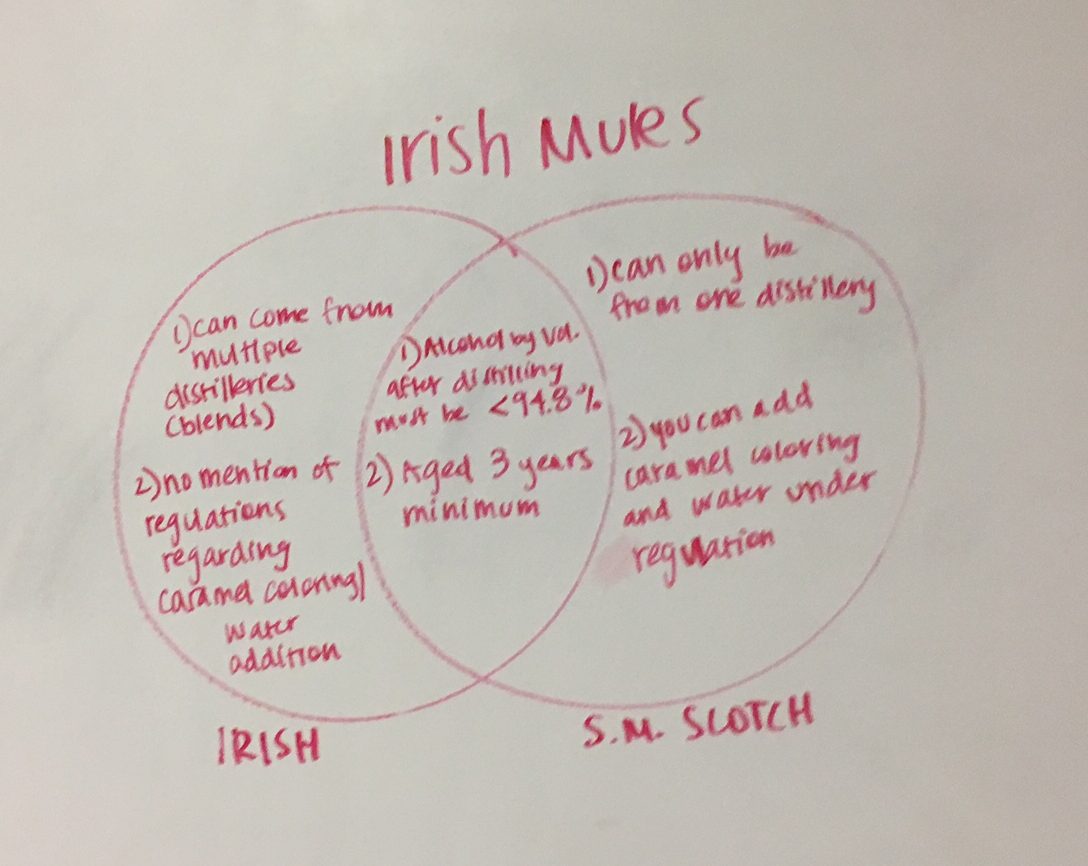 Irish Mules
1) can come from
multiple
distilleries
(blends)
2) no mention of
regulations
regarding
caramel coloring/
water
addition
1) Alcohol by vol.
after distilling
must be <94.8%
2) Aged 3 years
minimum
1) can only be
from one distillery
2) you can add
caramel coloring
and water under
regulation
IRISH
S.M. SCOTCH